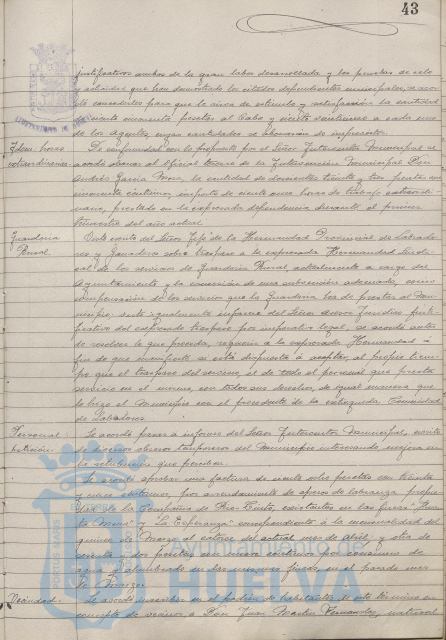 43
justificativos ambos de la gran labor desarrollada y las pruebas de celo
y actividad que han demostrado los citados dependientes municipales, se acor-
dó concederles para que les sirva de estímulo y satisfacción la cantidad
de ciento cincuenta pesetas al Cabo y ciento veinticinco a cada uno
de los agentes, cuyas cantidades se abonarán de imprevistos.
Idem. horas
extraordinarias.
De conformidad con lo propuesto por el Señor Interventor Municipal se
acordó abonar al Oficial de la Intervención Municipal Don
Andrés García Mora, la cantidad de doscientas treinta y tres pesetas con
cincuenta céntimos, importe de ciento horas de trabajo extraordi-
nario, prestado en la expresada dependencia durante el primer
trimestre del año actual.
Guardería
Rural.
Visto escrito del Señor Jefe de la Hermandad Provincial de Labrado-
res y Ganaderos sobre traspaso a la expresada Hermandad Sindi-
cal de los servicios de Guardería Rural, actualmente a cargo del
Ayuntamiento y la concesión de una subvención adecuada, como
compensación de los servicios que la Guardería ha de prestar al Mu-
nicipio, visto igualmente informe del Señor Asesor Jurídico justi-
ficativo del expresado traspaso por imperativo legal, se acordó antes
de resolver lo que proceda, requerir a la expresada Hermandad a
fin de que manifieste si está dispuesta a aceptar, al propio tiem-
po que el traspaso del servicio, el de todo el personal que presta
servicio en el mismo, con todos sus derechos, de igual manera que
lo hizo el Municipio con el procedente de la extinguida Comunidad
de Labradores.
Personal
petición.
Se acordó pasar a informe del Señor Interventor Municipal, escrito
de diversos obreros del Municipio interesando mejora en
las retribuciones que perciben.
Se acordó aprobar una factura de ciento ocho pesetas con treinta
y cinco céntimos, por arrendamiento de aperos de labranza propie-
dad de la Compañía de Rio-Tinto, existentes en las fincas "Huer-
ta Mena" y "La Esperanza" correspondiente a la mensualidad del
quince de Marzo al catorce del actual mes de abril y otra de
sesenta y dos pesetas con céntimos por consumo de
agua y alumbrado en las mismas fincas en el pasado mes
de Marzo.
Vecindad.
Se acordó inscribir en el padrón de habitantes de este término en
concepto de vecinos a Don Juan Martin Fernandez, natural
PORTUS MARIS
Ayuntamiento de
HUELVA